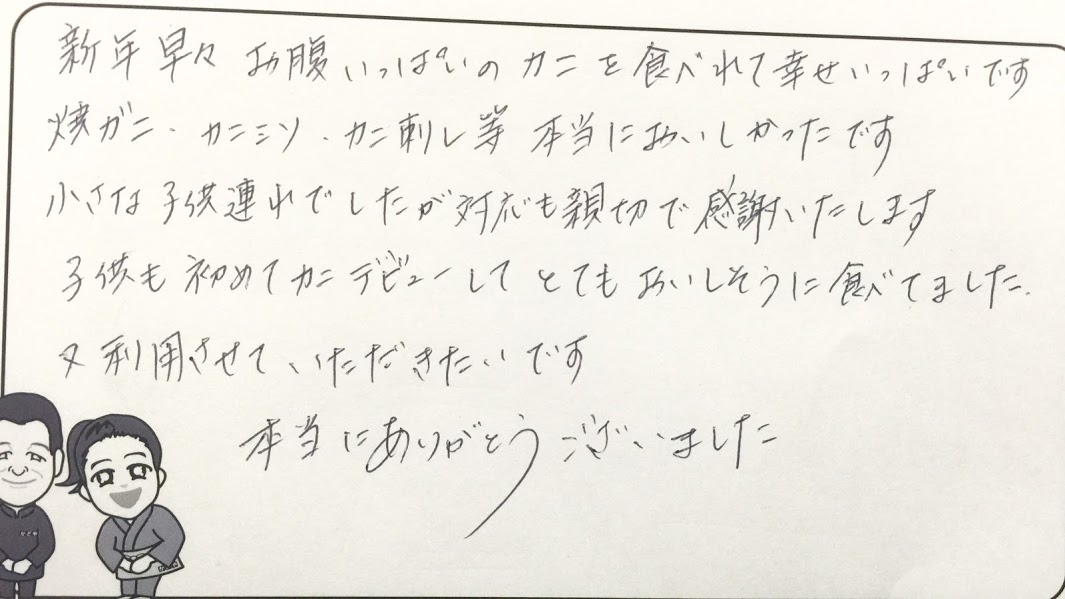 新年早々 お腹いっぱいのカニを食べれて幸せいっぱいです
焼ガニ・カニミソ・カニ刺し等 本当においしかったです
小さな子供連れでしたが対応も親切で感謝いたします
子供も初めてカニデビューしてとてもおいしそうに食べてました。
又利用させていただきたいです
本当にありがとうございました